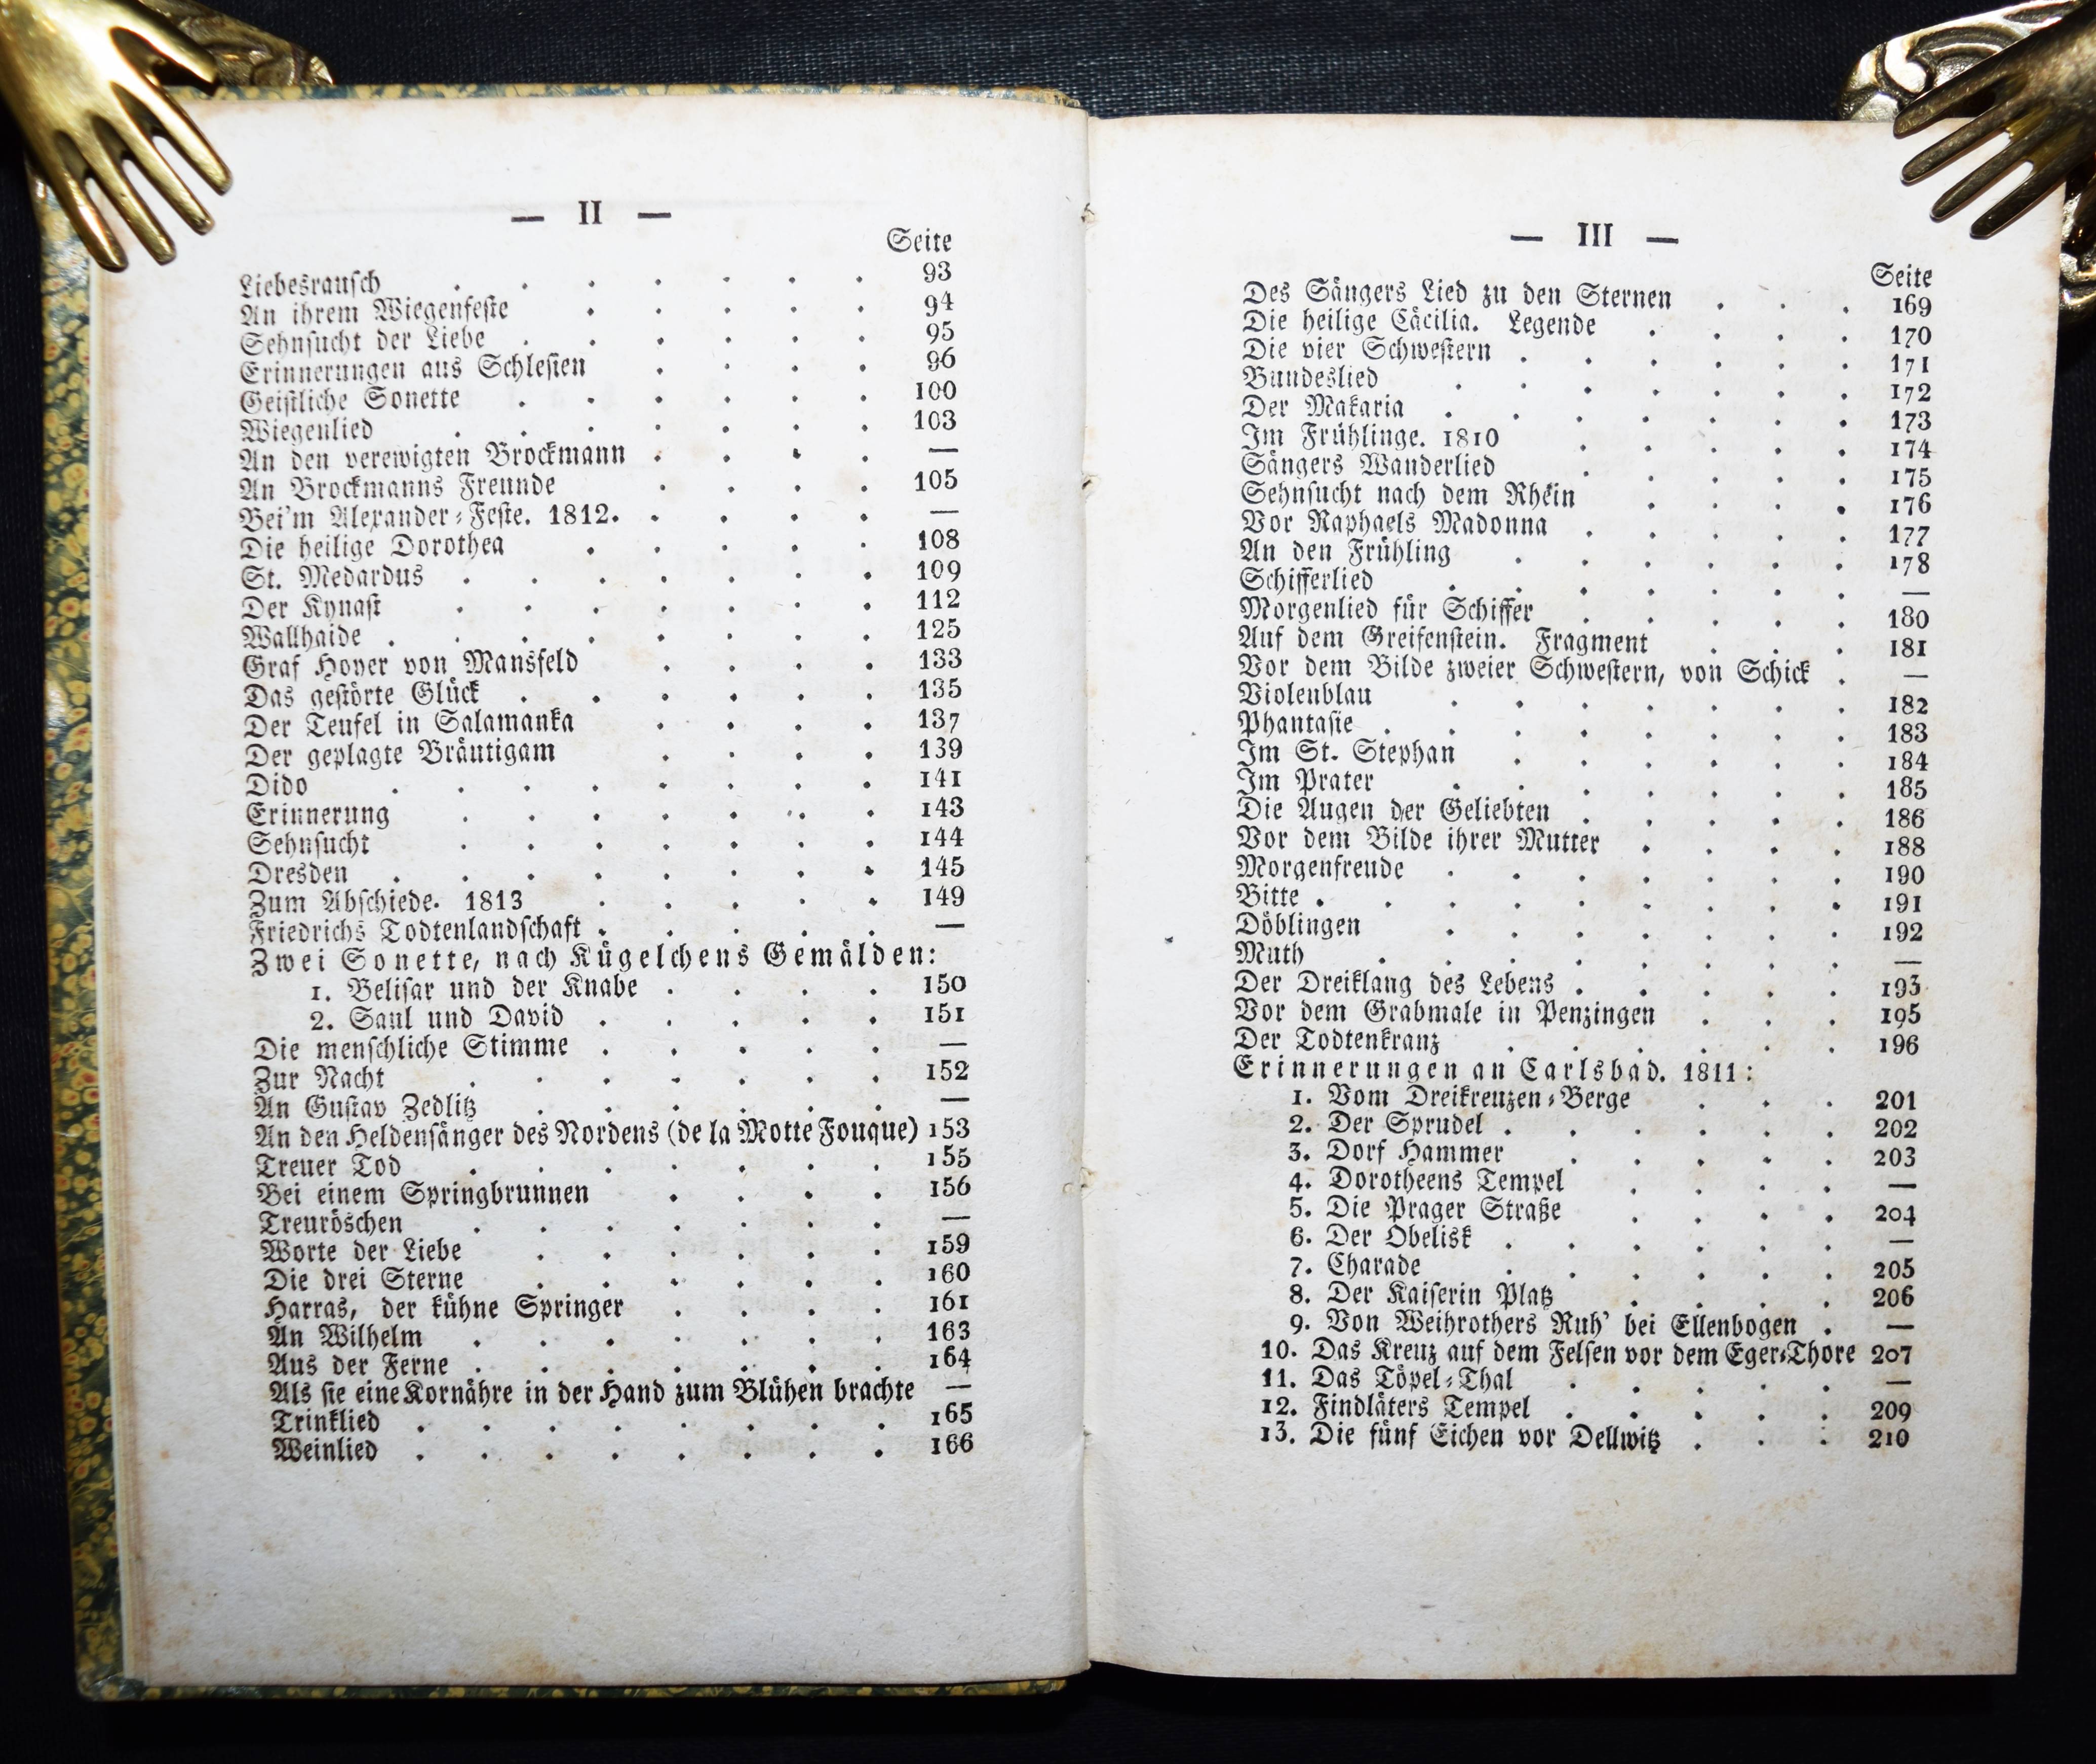 — II —
Seite
Liebesrausch . . . . . . . 93
An ihrem Wiegenfeste . . . . . 94
Sehnsucht der Liebe . . . . . . 95
Erinnerungen aus Schlesien . . . . 96
Geistliche Sonette . . . . . . 100
Wiegenlied . . . . . . . 103
An den verewigten Brockmann . . . . —
An Brockmanns Freunde . . . . 105
Bei'm Alexander-Feste. 1812. . . . . —
Die heilige Dorothea . . . . . 108
St. Medardus . . . . . . . 109
Der Kynast . . . . . . . 112
Wallhaide . . . . . . . . 125
Graf Hoyer von Mansfeld . . . . 133
Das gestörte Glück . . . . . . 135
Der Teufel in Salamanka . . . . 137
Der geplagte Bräutigam . . . . 139
Dido . . . . . . . . 141
Erinnerung . . . . . . . 143
Sehnsucht . . . . . . . 144
Dresden . . . . . . . . 145
Zum Abschiede. 1813 . . . . . 149
Friedrichs Todtenlandschaft . . . . . —
Zwei Sonette, nach Kügelchens Gemälden:
1. Belisar und der Knabe . . . . 150
2. Saul und David . . . . . 151
Die menschliche Stimme . . . . . —
Zur Nacht . . . . . . . 152
An Gustav Zedlitz . . . . . . —
An den Heldensänger des Nordens (de la Motte Fouque) 153
Treuer Tod . . . . . . . 155
Bei einem Springbrunnen . . . . 156
Treuröschen . . . . . . . —
Worte der Liebe . . . . . . 159
Die drei Sterne . . . . . . 160
Harras, der kühne Springer . . . . 161
An Wilhelm . . . . . . . 163
Aus der Ferne . . . . . . . 164
Als sie eine Kornähre in der Hand zum Blühen brachte —
Trinklied . . . . . . . . 165
Weinlied . . . . . . . . 166
— III —
Seite
Des Sängers Lied zu den Sternen . . . 169
Die heilige Cäcilia. Legende . . . . 170
Die vier Schwestern . . . . . . 171
Bundeslied . . . . . . . 172
Der Makaria . . . . . . . 173
Im Frühlinge. 1810 . . . . . 174
Sängers Wanderlied . . . . . 175
Sehnsucht nach dem Rhein . . . . 176
Vor Raphaels Madonna . . . . . 177
An den Frühling . . . . . . 178
Schifferlied . . . . . . . —
Morgenlied für Schiffer . . . . . 180
Auf dem Greifenstein. Fragment . . . 181
Vor dem Bilde zweier Schwestern, von Schick . —
Violenblau . . . . . . . 182
Phantasie . . . . . . . . 183
Im St. Stephan . . . . . . 184
Im Prater . . . . . . . 185
Die Augen der Geliebten . . . . . 186
Vor dem Bilde ihrer Mutter . . . . 188
Morgenfreude . . . . . . . 190
Bitte . . . . . . . . . 191
Döblingen . . . . . . . 192
Muth . . . . . . . . —
Der Dreiklang des Lebens . . . . . 193
Vor dem Grabmale in Penzingen . . . 195
Der Todtenkranz . . . . . . 196
Erinnerungen an Carlsbad. 1811:
1. Vom Dreikreuzen-Berge . . . 201
2. Der Sprudel . . . . . . 202
3. Dorf Hammer . . . . . 203
4. Dorotheens Tempel . . . . —
5. Die Prager Straße . . . . 204
6. Der Obelisk . . . . . . —
7. Charade . . . . . 205
8. Der Kaiserin Platz . . . . 206
9. Von Weihrothers Ruh' bei Ellenbogen . —
10. Das Kreuz auf dem Felsen vor dem Eger-Thore 207
11. Das Töpel-Thal . . . . . —
12. Findläters Tempel . . . . . 209
13. Die fünf Eichen vor Dellwitz . . . 210